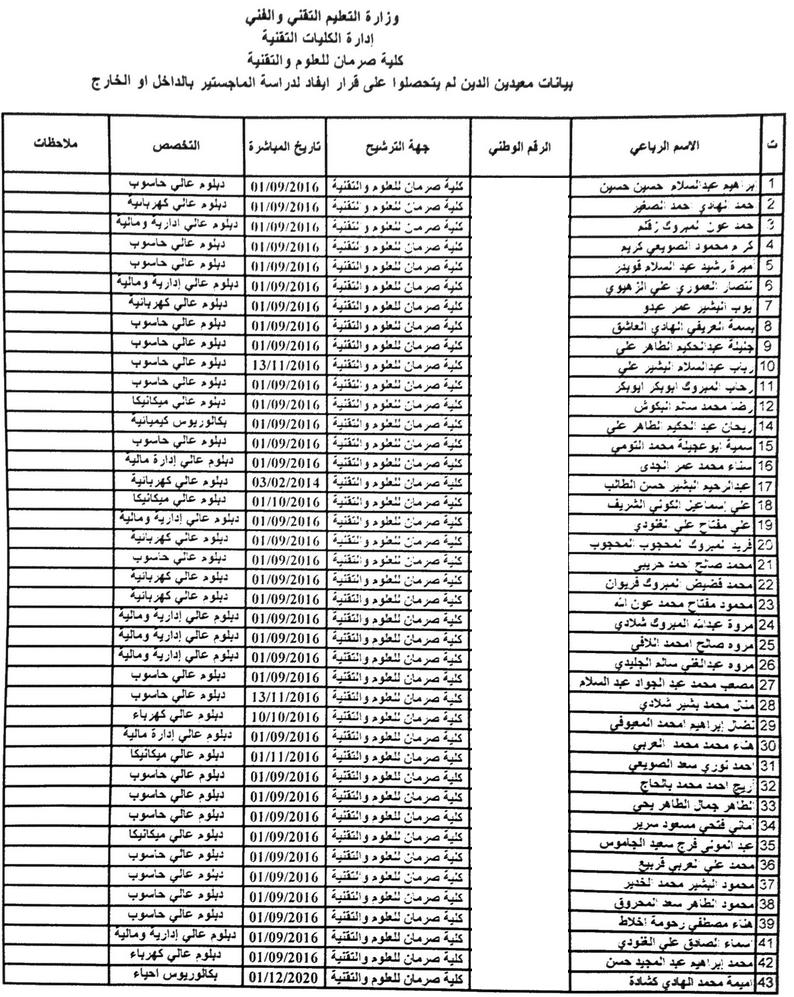 وزارة التعليم التقني والفني
إدارة الكليات التقنية
كلية صرمان للعلوم والتقنية
بيانات معيدين الدين لم يتحصلوا على قرار ايفاد لدراسة الماجستير بالداخل او الخارج
ت الاسم الرباعي الرقم الوطني جهة الترشيح تاريخ المباشرة التخصص ملاحظات
1 براهيم عبدالسلام حسين حسين كلية صرمان للعلوم والتقنية 01/09/2016 دبلوم عالي حاسوب
2 حمد الهادي احمد الصغير كلية صرمان للعلوم والتقنية 01/09/2016 دبلوم عالي كهربائية
3 حمد عون المبروك زقلم كلية صرمان للعلوم والتقنية 01/09/2016 دبلوم عالي ادارية ومالية
4 كرم محمود الصويعي كريم كلية صرمان للعلوم والتقنية 01/09/2016 دبلوم عالي حاسوب
5 أميرة رشيد عبد السلام قويدر كلية صرمان للعلوم والتقنية 01/09/2016 دبلوم عالي حاسوب
6 نتصار العموري علي الزهيوي كلية صرمان للعلوم والتقنية 01/09/2016 دبلوم عالي إدارية ومالية
7 يوب البشير عمر عبدو كلية صرمان للعلوم والتقنية 01/09/2016 دبلوم عالي كهربائية
8 بسمة العريفي الهادي العاشق كلية صرمان للعلوم والتقنية 01/09/2016 دبلوم عالي حاسوب
9 جليلة عبدالحكيم الطاهر علي كلية صرمان للعلوم والتقنية 01/09/2016 دبلوم عالي حاسوب
10 رباب عبدالسلام البشير علي كلية صرمان للعلوم والتقنية 13/11/2016 دبلوم عالي حاسوب
11 رحاب المبروك ابوبكر ابوبكر كلية صرمان للعلوم والتقنية 01/09/2016 دبلوم عالي حاسوب
12 رضا محمد سالم البكوش كلية صرمان للعلوم والتقنية 01/09/2016 دبلوم عالي ميكانيكا
14 ريحان عبد الحكيم الطاهر علي كلية صرمان للعلوم والتقنية 01/09/2016 بكالوريوس كيميائية
15 سمية ابوعجيلة محمد التومي كلية صرمان للعلوم والتقنية 01/09/2016 دبلوم عالي حاسوب
16 سناء محمد عمر الجدى كلية صرمان للعلوم والتقنية 01/09/2016 دبلوم عالي إدارة مالية
17 عبدالرحيم البشير حسن الطالب كلية صرمان للعلوم والتقنية 03/02/2014 دبلوم عالي كهربائية
18 علي إسماعيل الكوني الشريف كلية صرمان للعلوم والتقنية 01/10/2016 دبلوم عالي ميكانيكا
19 علي مفتاح علي الغنودي كلية صرمان للعلوم والتقنية 01/09/2016 دبلوم عالي إدارية ومالية
20 فريد المبروك المحجوب المحجوب كلية صرمان للعلوم والتقنية 01/09/2016 دبلوم عالي كهربائية
21 محمد صالح احمد حريبي كلية صرمان للعلوم والتقنية 01/09/2016 دبلوم عالي حاسوب
22 محمد فضيض المبروك فريوان كلية صرمان للعلوم والتقنية 01/09/2016 دبلوم عالي كهربائية
23 محمود مفتاح محمد عون الله كلية صرمان للعلوم والتقنية 01/09/2016 دبلوم عالي كهربائية
24 مروة عبدالله المبروك شلادي كلية صرمان للعلوم والتقنية 01/09/2016 دبلوم عالي إدارية ومالية
25 مروه صالح امحمد اللافي كلية صرمان للعلوم والتقنية 01/09/2016 دبلوم عالي إدارية ومالية
26 مروه عبدالغني سالم الجليدي كلية صرمان للعلوم والتقنية 01/09/2016 دبلوم عالي إدارية ومالية
27 مصعب محمد عبد الجواد عبد السلام كلية صرمان للعلوم والتقنية 01/09/2016 دبلوم عالي حاسوب
28 منال محمد بشير شلادي كلية صرمان للعلوم والتقنية 13/11/2016 دبلوم عالي حاسوب
29 نضال إبراهيم امحمد المعيوفي كلية صرمان للعلوم والتقنية 10/10/2016 دبلوم عالي كهرباء
30 هناء محمد محمد العربي كلية صرمان للعلوم والتقنية 01/09/2016 دبلوم عالي إدارة مالية
31 احمد نوري سعد الصويعي كلية صرمان للعلوم والتقنية 01/11/2016 دبلوم عالي ميكانيكا
32 أريج احمد محمد بالحاج كلية صرمان للعلوم والتقنية 01/09/2016 دبلوم عالي حاسوب
33 الطاهر جمال الطاهر يحي كلية صرمان للعلوم والتقنية 01/09/2016 دبلوم عالي حاسوب
34 أماني فتحي مسعود سرير كلية صرمان للعلوم والتقنية 01/09/2016 دبلوم عالي حاسوب
35 عبد المولي فرج سعيد الجاموس كلية صرمان للعلوم والتقنية 01/09/2016 دبلوم عالي ميكانيكا
36 محمد علي العربي قربيع كلية صرمان للعلوم والتقنية 01/09/2016 دبلوم عالي حاسوب
37 محمود البشير محمد الخدير كلية صرمان للعلوم والتقنية 01/09/2016 دبلوم عالي حاسوب
38 محمود الطاهر سعد المحروق كلية صرمان للعلوم والتقنية 01/09/2016 دبلوم عالي حاسوب
39 هناء مصطفي رحومة اخلاط كلية صرمان للعلوم والتقنية 01/09/2016 دبلوم عالي حاسوب
41 اسماء الصادق علي الغنودي كلية صرمان للعلوم والتقنية 01/09/2016 دبلوم عالي إدارية ومالية
42 محمد إبراهيم عبد المجيد حسن كلية صرمان للعلوم والتقنية 01/09/2016 دبلوم عالي كهرباء
43 اميمة محمد الهادي كشادة كلية صرمان للعلوم والتقنية 01/12/2020 بكالوريوس احياء